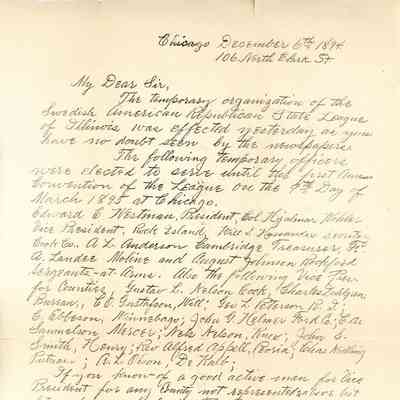 Chicago December 6th 1894
106 North Clark St
My Dear Sir,
The temporary organization of the
Swedish American Republican State League
of Illinois was effected yesterday as you
have no doubt seen by the newspapers
The following temporary officers
were elected to serve until the first
Convention of the League on the 9th Day of
March 1895 at Chicago.
Edward C. Westman, President, Col Hjalmar Kohler
Vice President, Rock Island,
Cook Co. A. L. Anderson Cambridge Treasurer,
A. Landee Moline and August Johnson Rockford
Sergeants-at Arms. Also the following Vice Pres
for Counties, Gustav L. Nelson Cook, Charles Lindgren
Bureau, C. O. Gustafson, Will; Geo L. Peterson R. I.
E. Ebbeson, Winnebago; John G. Helmer Ford Co;
Samuelson Mercer; Nels Nelson, Knox; John E.
Smith, Henry; Rev Alfred Appell, Peoria;
Putnam; A. L. Olson, De Kalb;
If you know of a good active man for Vice
President for any County not represented